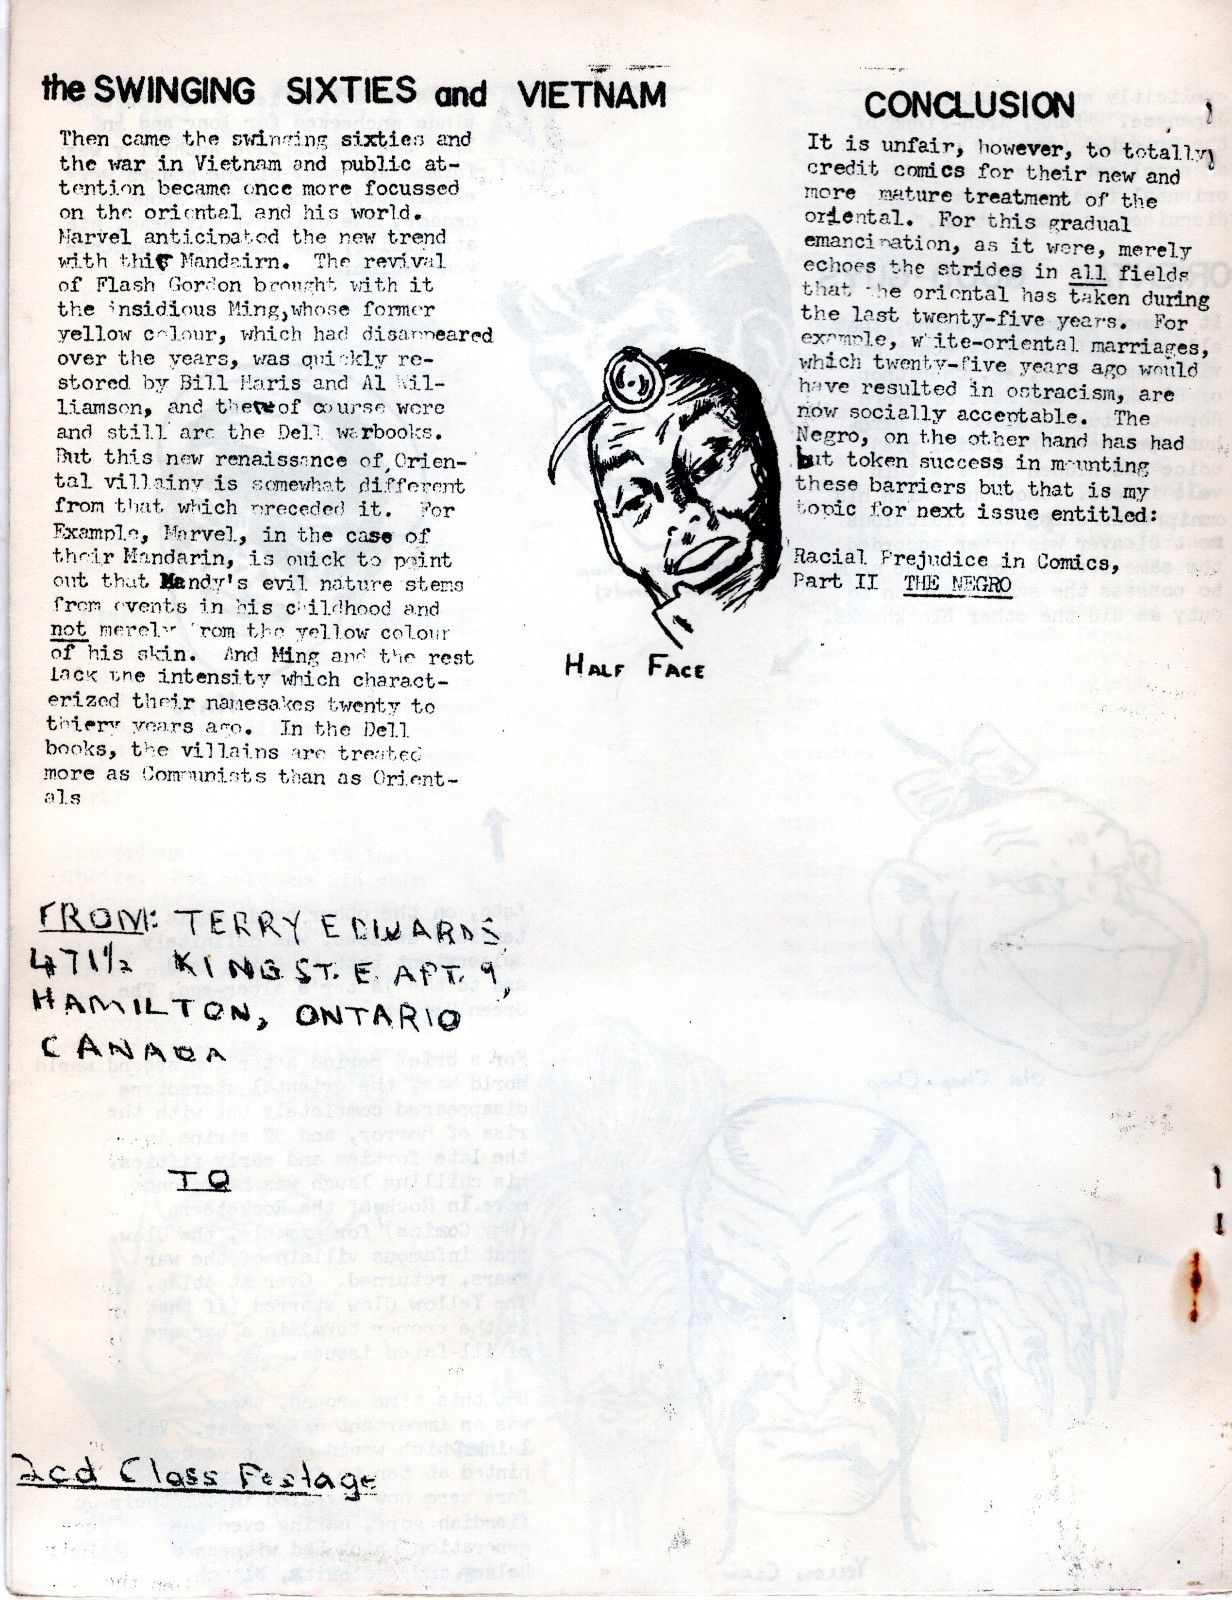 the SWINGING SIXTIES and VIETNAM
Then came the swinging sixties and
the war in Vietnam and public at-
tention became once more focussed
on the oriental and his world.
Marvel anticipated the new trend
with thir Mandairn. The revival
of Flash Gordon brought with it
the insidious Ming,whose former
yellow colour, which had disappeared
over the years, was quickly re-
stored by Bill Haris and Al Wil-
liamson, and there of course were
and still are the Dell warbooks.
But this new renaissance of Orien-
tal villainy is somewhat different
from that which preceded it. For
Example, Marvel, in the case of
their Mandarin, is quick to point
out that Mandy's evil nature stems
from events in his childhood and
not merely from the yellow colour
of his skin. And Ming and the rest
lack the intensity which charact-
erized their namesakes twenty to
thiery years ago. In the Dell
books, the villains are treated
more as Communists than as Orient-
als
HALF FACE
CONCLUSION
It is unfair, however, to totally
credit comics for their new and
more mature treatment of the
oriental. For this gradual
emancipation, as it were, merely
echoes the strides in all fields
that the oriental has taken during
the last twenty-five years. For
example, white-oriental marriages,
which twenty-five years ago would
have resulted in ostracism, are
now socially acceptable. The
Negro, on the other hand has had
but token success in mounting
these barriers but that is my
topic for next issue entitled:
Racial Prejudice in Comics,
Part II THE NEGRO
FROM: TERRY EDWARDS
471½ KING ST. E. APT. 9,
HAMILTON, ONTARIO
CANADA
TO
2cd Class Postage